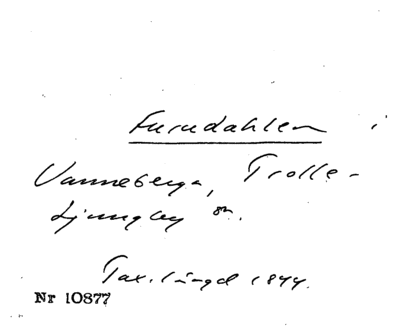 Furudahlen i
Vanneberga, Trolle-
Ljungby sn.
Tax.längd 1844.
Nr 10877